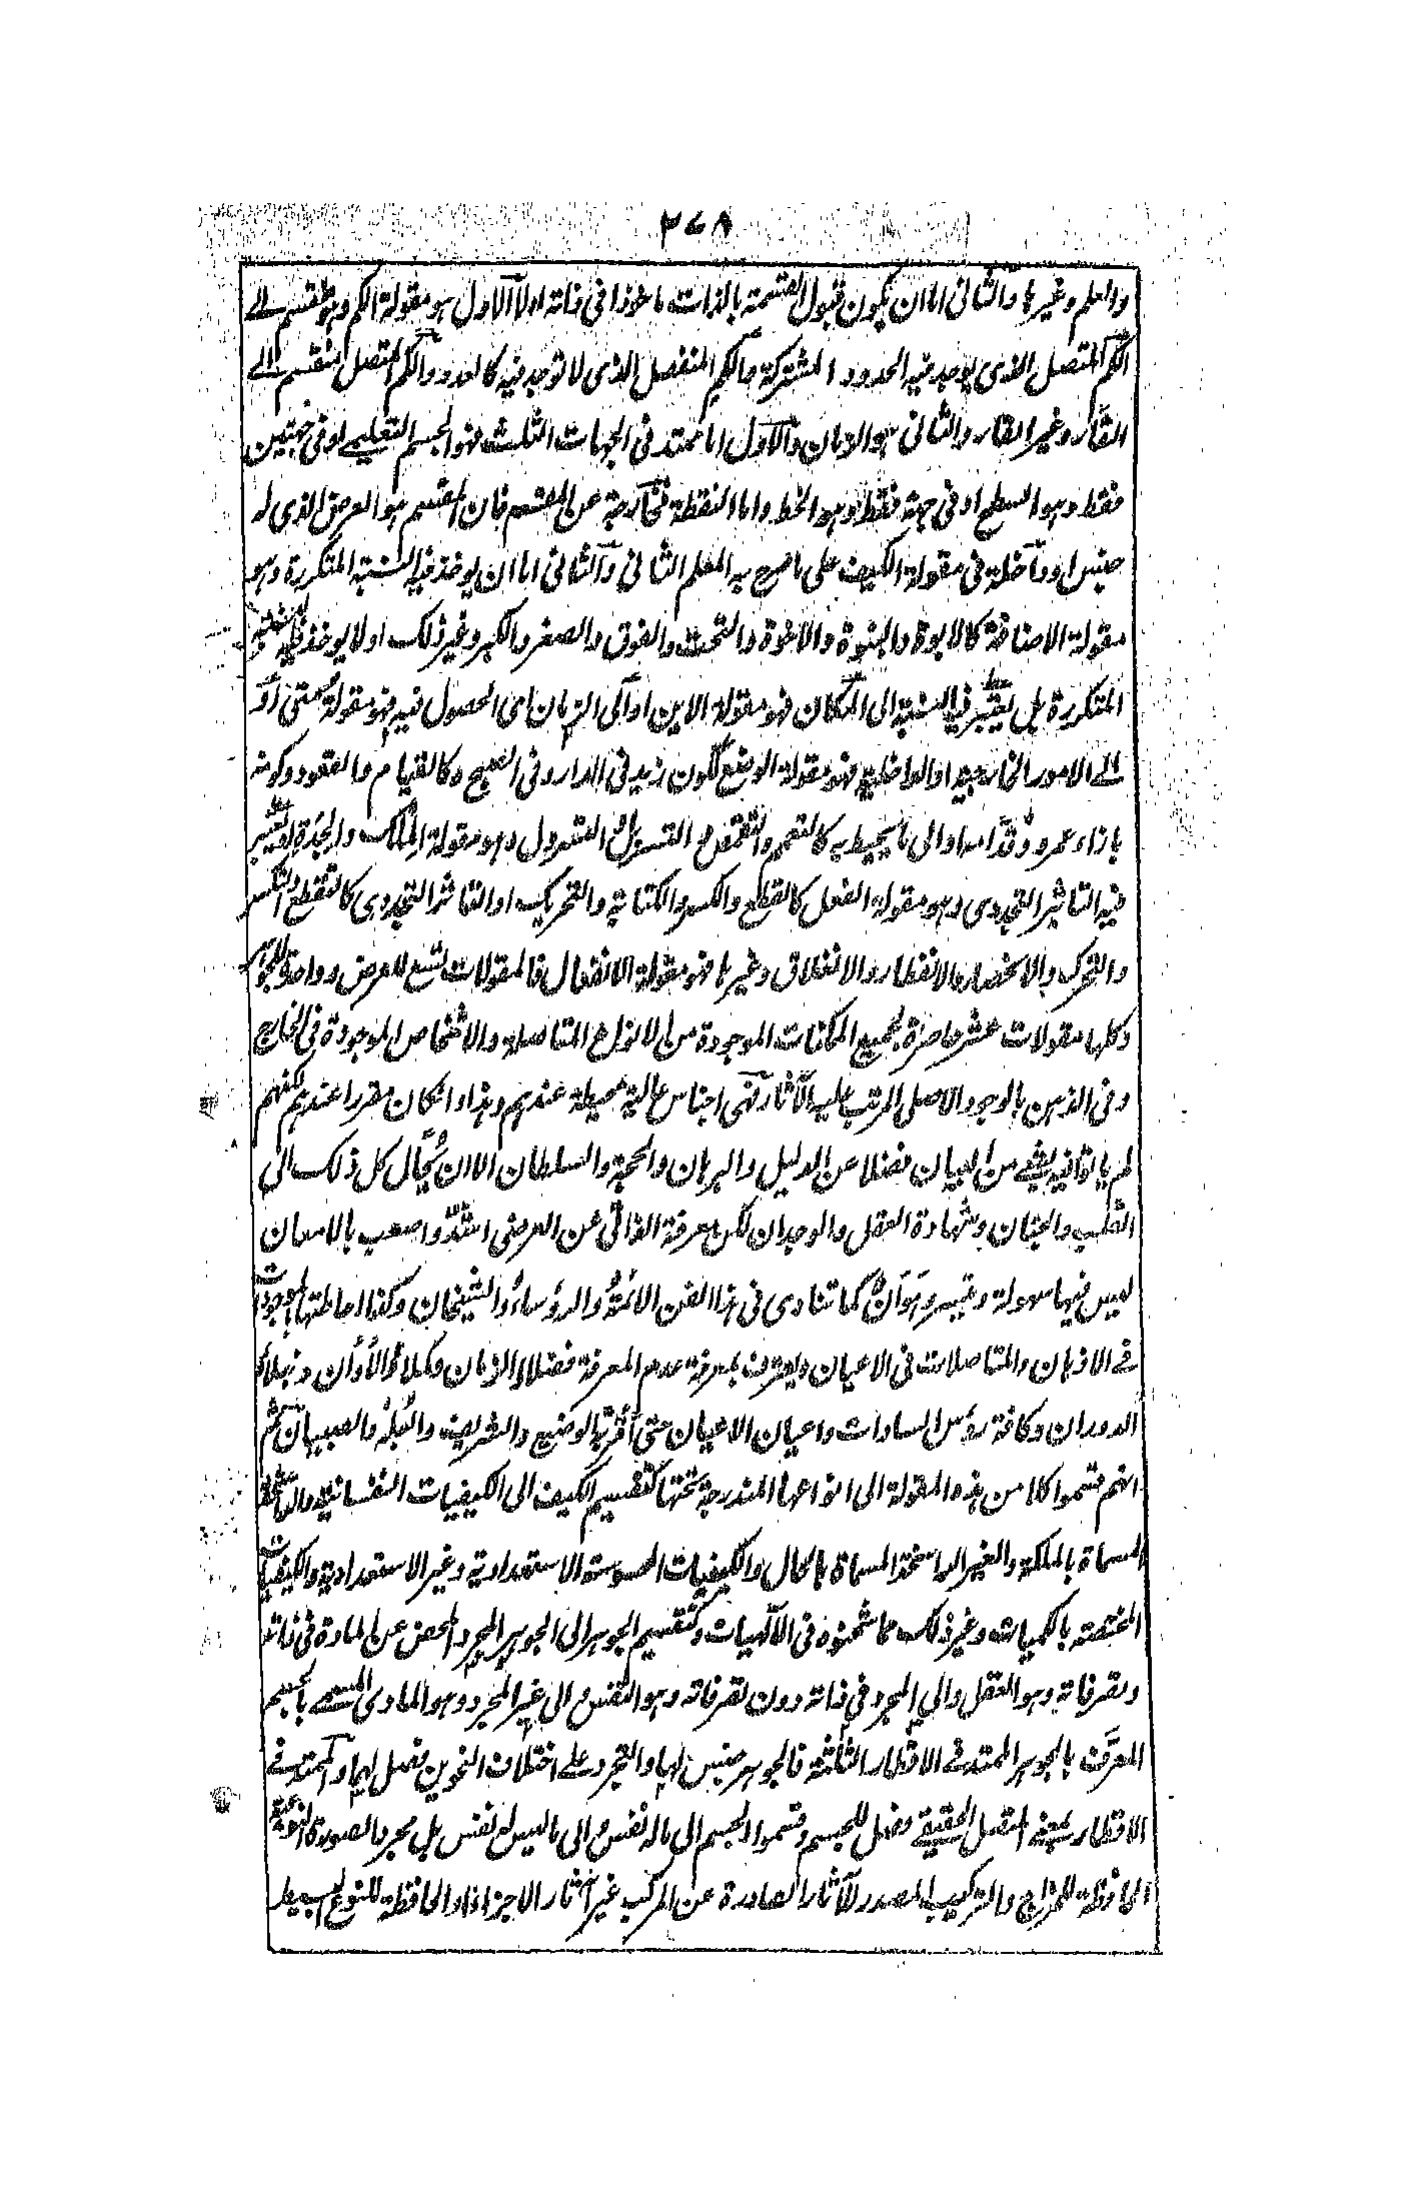 ٢٧٨
والعلم وغيرها والثانى اما ان يكون قبول القسمة بالذات ماخوذا فى ذاته اولا الاول هو مقولة الكم وهو منقسم الے
الكم المتصل الذى يوجد فيه الحدود المشتركة والكم المنفصل الذى لا توجد فيه كالعدد والكم المتصل منقسم الے
القار وغير القار والثانى هو الزمان والاول اما ممتد فى الجهات الثلث فهو الجسم التعليمے او فى جهتين
فقط وهو السطح او فى جهة فقط وهو الخط واما النقطة فخارجة عن المقسم فان المقسم هو العرض الذى له
جنس او داخلة فى مقولة الكيف على ما صرح به المعلم الثانى والثانى اما ان يوخذ فيه النسبة المتكررة وهو
مقولة الاضافة كالابوة والبنوة والاخوة والتحت والفوق والصغر والكبر وغير ذلك اولا يوخذ فيه النسبة
المتكررة بل يعتبر فيه النسبة الى المكان فهو مقولة الاين او الى الزمان اى الحصول فيه فهو مقولة متى او
الے الامور الخارجية او الداخلية فهو مقولة الوضع ككون زيد فى الدار وفى الصبح وكالقيام والقعود وكونه
بازاء عمرو وقدامه او الى ما يحيط به كالتعمم والتقمص و التسربل و التسرول وهو مقولة الملك والجدة او يعتبر
فيه التاثير التجددى وهو مقولة الفعل كالقطع والكسر والكتابة والتحريك او التاثر التجددى كالتقطع والتكسر
والتحرك والانحصار والانفطار والانغلاق وغيرها فهو مقولة الانفعال فالمقولات تسع للعرض وواحدة للجوهر
وكلها مقولات عشر حاصرة لجميع الممكنات الموجودة من الانواع المتاصلة والاشخاص الموجودة فى الخارج
وفى الذهن بالوجود الاصلى المرتب عليه الآثار فهى اجناس عالية محصلة عندهم وهذا وان كان مقررا عندهم لكنهم
لم ياتوا فيه بشئ من البيان فضلا عن الدليل والبرهان والحجة والسلطان الا ان يحال كل ذلك الى
القلب والجنان وشهادة العقل والوجدان لكن معرفة الذاتى عن العرضى اشد واصعب بالامعان
ليس فيها سهولة وتيسر وهوان كما تنادى فى هذا الفن الائمة والرؤساء والشيخان وكذا احاطتها بالموجودات
فے الاذهان والمتاصلات فى الاعيان ويعترف بمعرفة عدم المعرفة فضلاء الزمان وكملاء الاوان ونبلاء
الدوران وكافة رؤس السادات واعيان الاعيان حتى اقر به الوضيع والشريف والبله والصبيان ثم
انهم قسموا كلا من هذه المقولة الى انواعها المندرجة تحتها كتقسيم الكيف الى الكيفيات النفسانية والراسخة
المسماة بالملكة والغير الراسخة المسماة بالحال والكيفيات المحسوسة الاستعدادية وغير الاستعدادية والكيفيات
المختصة بالكميات وغير ذلك مما شحنوه فى الآلهيات وكتقسيم الجوهر الى الجوهر المجرد المحض عن المادة فى ذاته
وتصرفاته وهو العقل والى المجرد فى ذاته دون تصرفاته وهو النفس والى غير المجرد وهو المادى المسمے بالجسم
المعرف بالجوهر الممتد فے الاقطار الثلثة فالجوهر جنس لها والتجرد علے اختلاف النحوين فصل لهما والممتد فے
الاقطار بمعنے المتصل الحقيقے فصل للجسم وقسموا الجسم الى ما له نفس والى ما ليس له نفس بل مجرد الصورة النوعية
الحافظة للمزاج والتركيب المصدر للآثار الصادرة عن المركب غير آثار الاجزاء او الحافظة للنوع البسيط